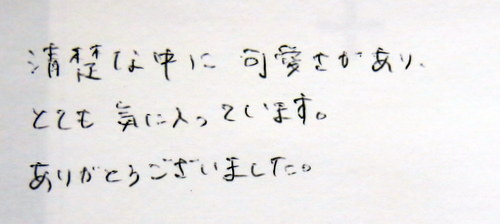 清楚な中に 可愛さがあり、
とても 気に入っています。
ありがとうございました。